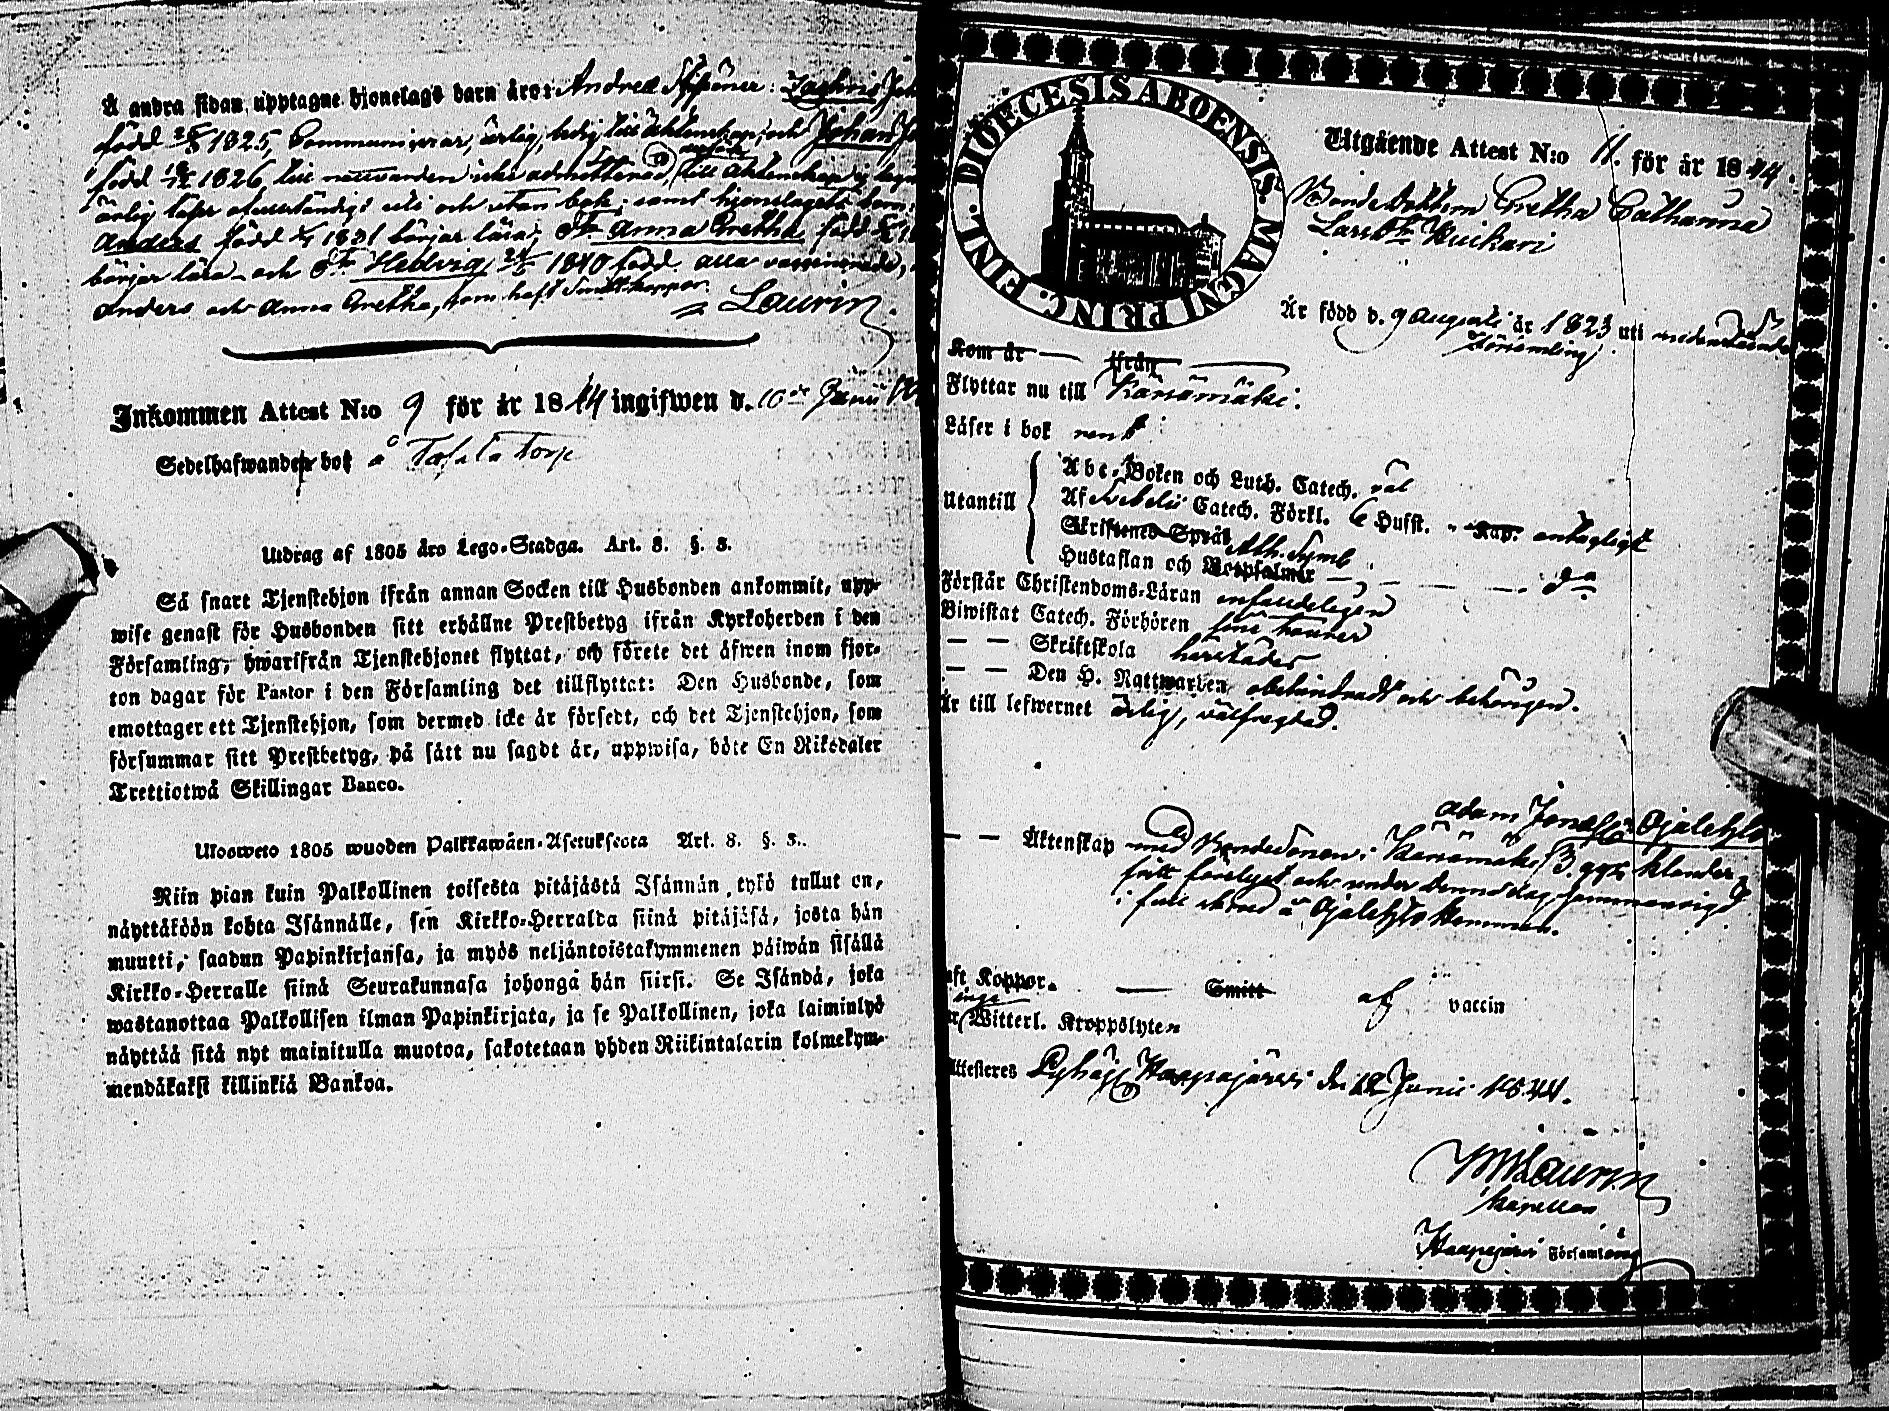 Å andra sidan upptagne hjonelags barn äro: Andreæ Söner:
född 1825, Communicerar, ärlig, ledig till äktenskap; och Johan
född 1826, till nattvarden icke admitterad, till äktenskap
ärlig läser
Anders född 1831 börjar lära; Anna Gretha född
börjar lära och Hedvig 1840 född. alla vaccinerade,
Anders och Anna Gretha, som haft Smittkoppor.
Laurin
Inkommen Attest N:o 9 för år 1844 ingifwen d. 10de Junii
Sedelhafwanden bor å Torp
Utdrag af 1805 års Lego-Stadga. Art. 8. §. 3.
Så snart Tjenstehjon ifrån annan Socken till Husbonden ankommit, upp-
wise genast för Husbonden sitt erhållne Prestbetyg ifrån Kyrkoherden i den
Församling, hwarifrån Tjenstehjonet flyttat, och förete det äfwen inom fjor-
ton dagar för Pastor i den Församling det tillflyttat: Den Husbonde, som
emottager ett Tjenstehjon, som dermed icke är försedt, och det Tjenstehjon, som
försummar sitt Prestbetyg, på sätt nu sagdt är, uppwisa, böte En Riksdaler
Trettiotwå Skillingar Banco.
Ulosweto 1805 wuoden Palkkawäen-Asetuksesta Art. 8. §. 3.
Niin pian kuin Palkollinen toisesta pitäjästä Isännän tykö tullut on,
näyttäköön kohta Isännälle, sen Kirkko-Herralda siinä pitäjäsä, josta hän
muutti, saadun Papinkirjansa, ja myös neljäntoistakymmenen päiwän sisällä
Kirkko-Herralle siinä Seurakunnasa johonga hän siirsi. Se Isändä, joka
wastanottaa Palkollisen ilman Papinkirjata, ja se Palkollinen, joka laiminlyö
näyttää sitä nyt mainitulla muotoa, sakotetaan yhden Riikintalarin kolmekym-
mendäkaksi killinkiä Bankoa.
FINL. DIOECESIS ABOENSIS. MAGNI PRINC.
Utgående Attest N:o 11. för år 1844.
Bondedottern Gretha Catharina
Larsdr Kuikari
Är född d. 9 Augusti år 1823 uti nedanstående
Församling.
Kom år ifrån
Flyttar nu till Kärsämäki.
Läser i bok rent
Utantill
Abc-Boken och Luth. Catech. väl
Af Svebelii Catech. Förkl. 6 Hufst. Kap. antagligt
Skriftenes Språk Ath. Symb.
Hustaflan och Botpsalmer — do
Förstår Christendoms-Läran
Biwistat Catech. Förhören
— — Skriftskola härstädes
— — Den H. Nattwarden obehindrad och behörigen.
Är till lefwernet ärlig, välfrägdad.
Adam Jonasson Ojalehto
— — Äktenskap med Bondesonen i Kärsämäki
i fullt å Ojalehto Hemman.
aft Koppor. — Smitt af vaccin
inga
Witterl. Kroppslyten
Attesteres Pyhäj. Haapajärvi den 12 Junii 1844.
Laurin
Kapellan
Haapajärvi Församling